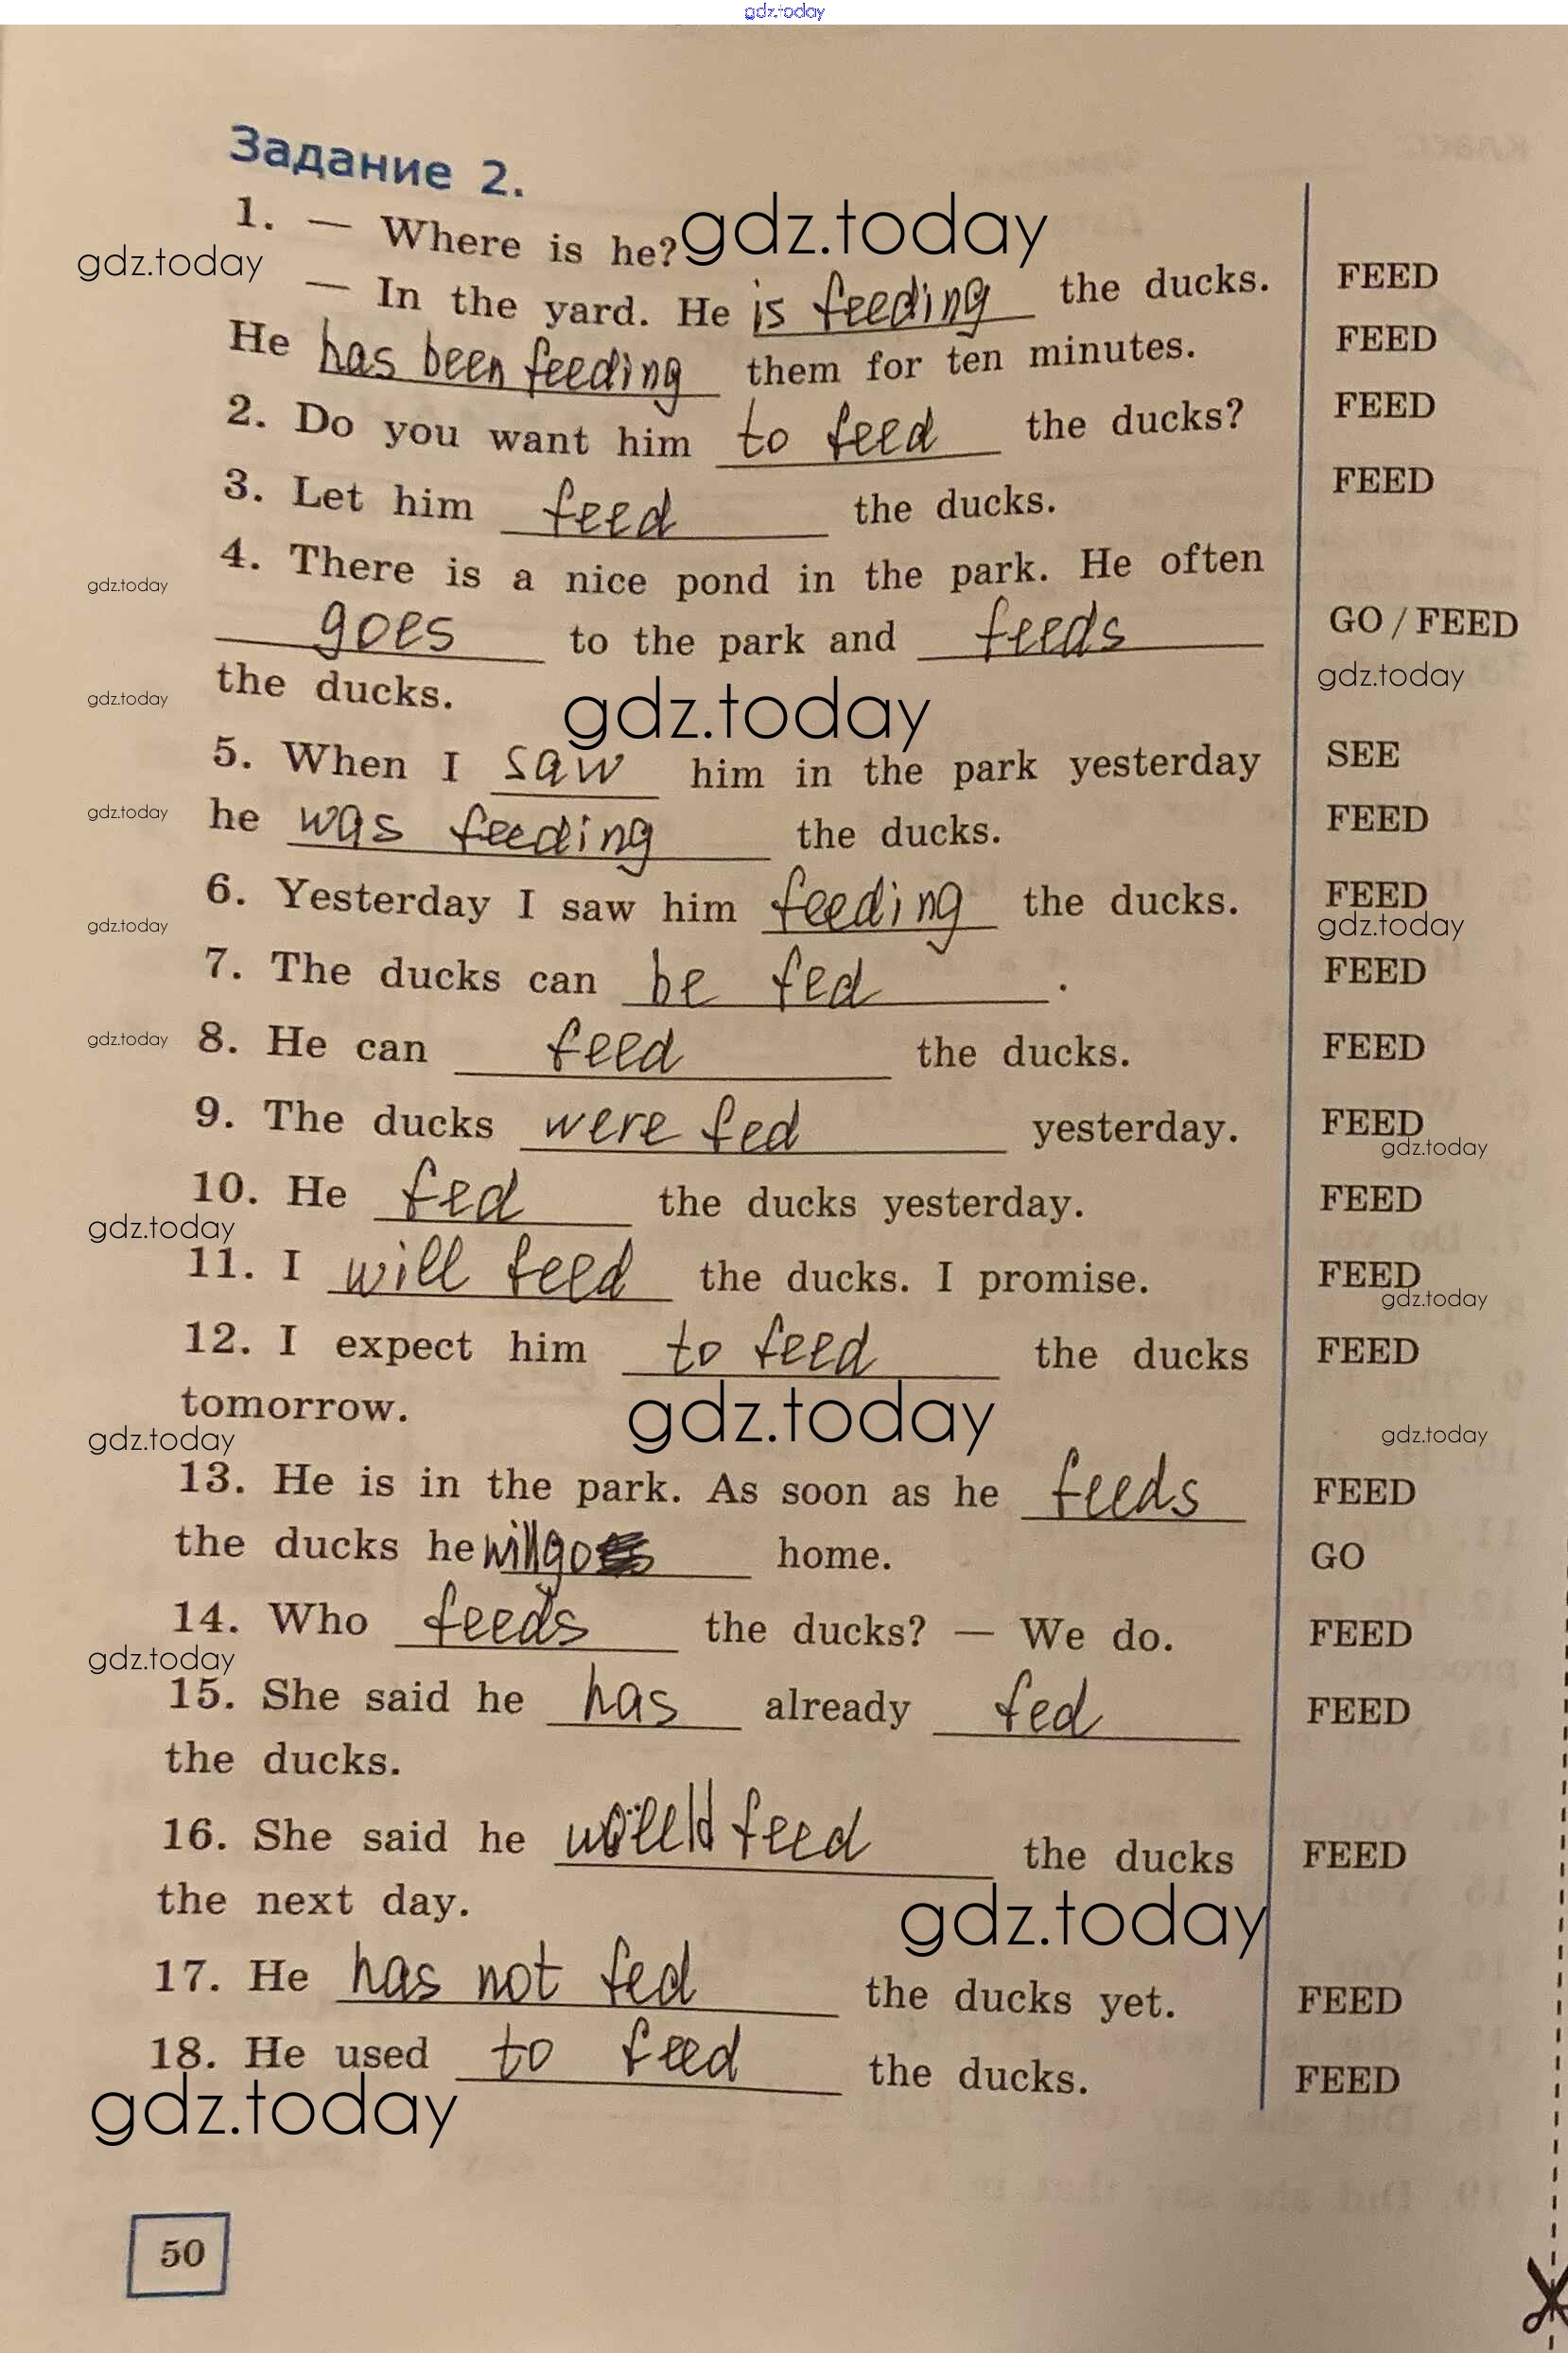 gdz.today
Задание 2.
1. — Where is he? gdz.today
gdz.today
— In the yard. He is feeding the ducks. FEED
He has been feeding them for ten minutes. FEED
2. Do you want him to feed the ducks? FEED
3. Let him feed the ducks. FEED
4. There is a nice pond in the park. He often
gdz.today
goes to the park and feeds GO / FEED
the ducks. gdz.today
gdz.today gdz.today
5. When I saw him in the park yesterday SEE
gdz.today he was feeding the ducks. FEED
6. Yesterday I saw him feeding the ducks. FEED
gdz.today gdz.today
7. The ducks can be fed . FEED
gdz.today 8. He can feed the ducks. FEED
9. The ducks were fed yesterday. FEED
gdz.today
10. He fed the ducks yesterday. FEED
gdz.today
11. I will feed the ducks. I promise. FEED
gdz.today
12. I expect him to feed the ducks FEED
tomorrow. gdz.today
gdz.today gdz.today
13. He is in the park. As soon as he feeds FEED
the ducks he will go home. GO
14. Who feeds the ducks? — We do. FEED
gdz.today
15. She said he has already fed FEED
the ducks.
16. She said he would feed the ducks FEED
the next day. gdz.today
17. He has not fed the ducks yet. FEED
18. He used to feed the ducks. FEED
gdz.today
50